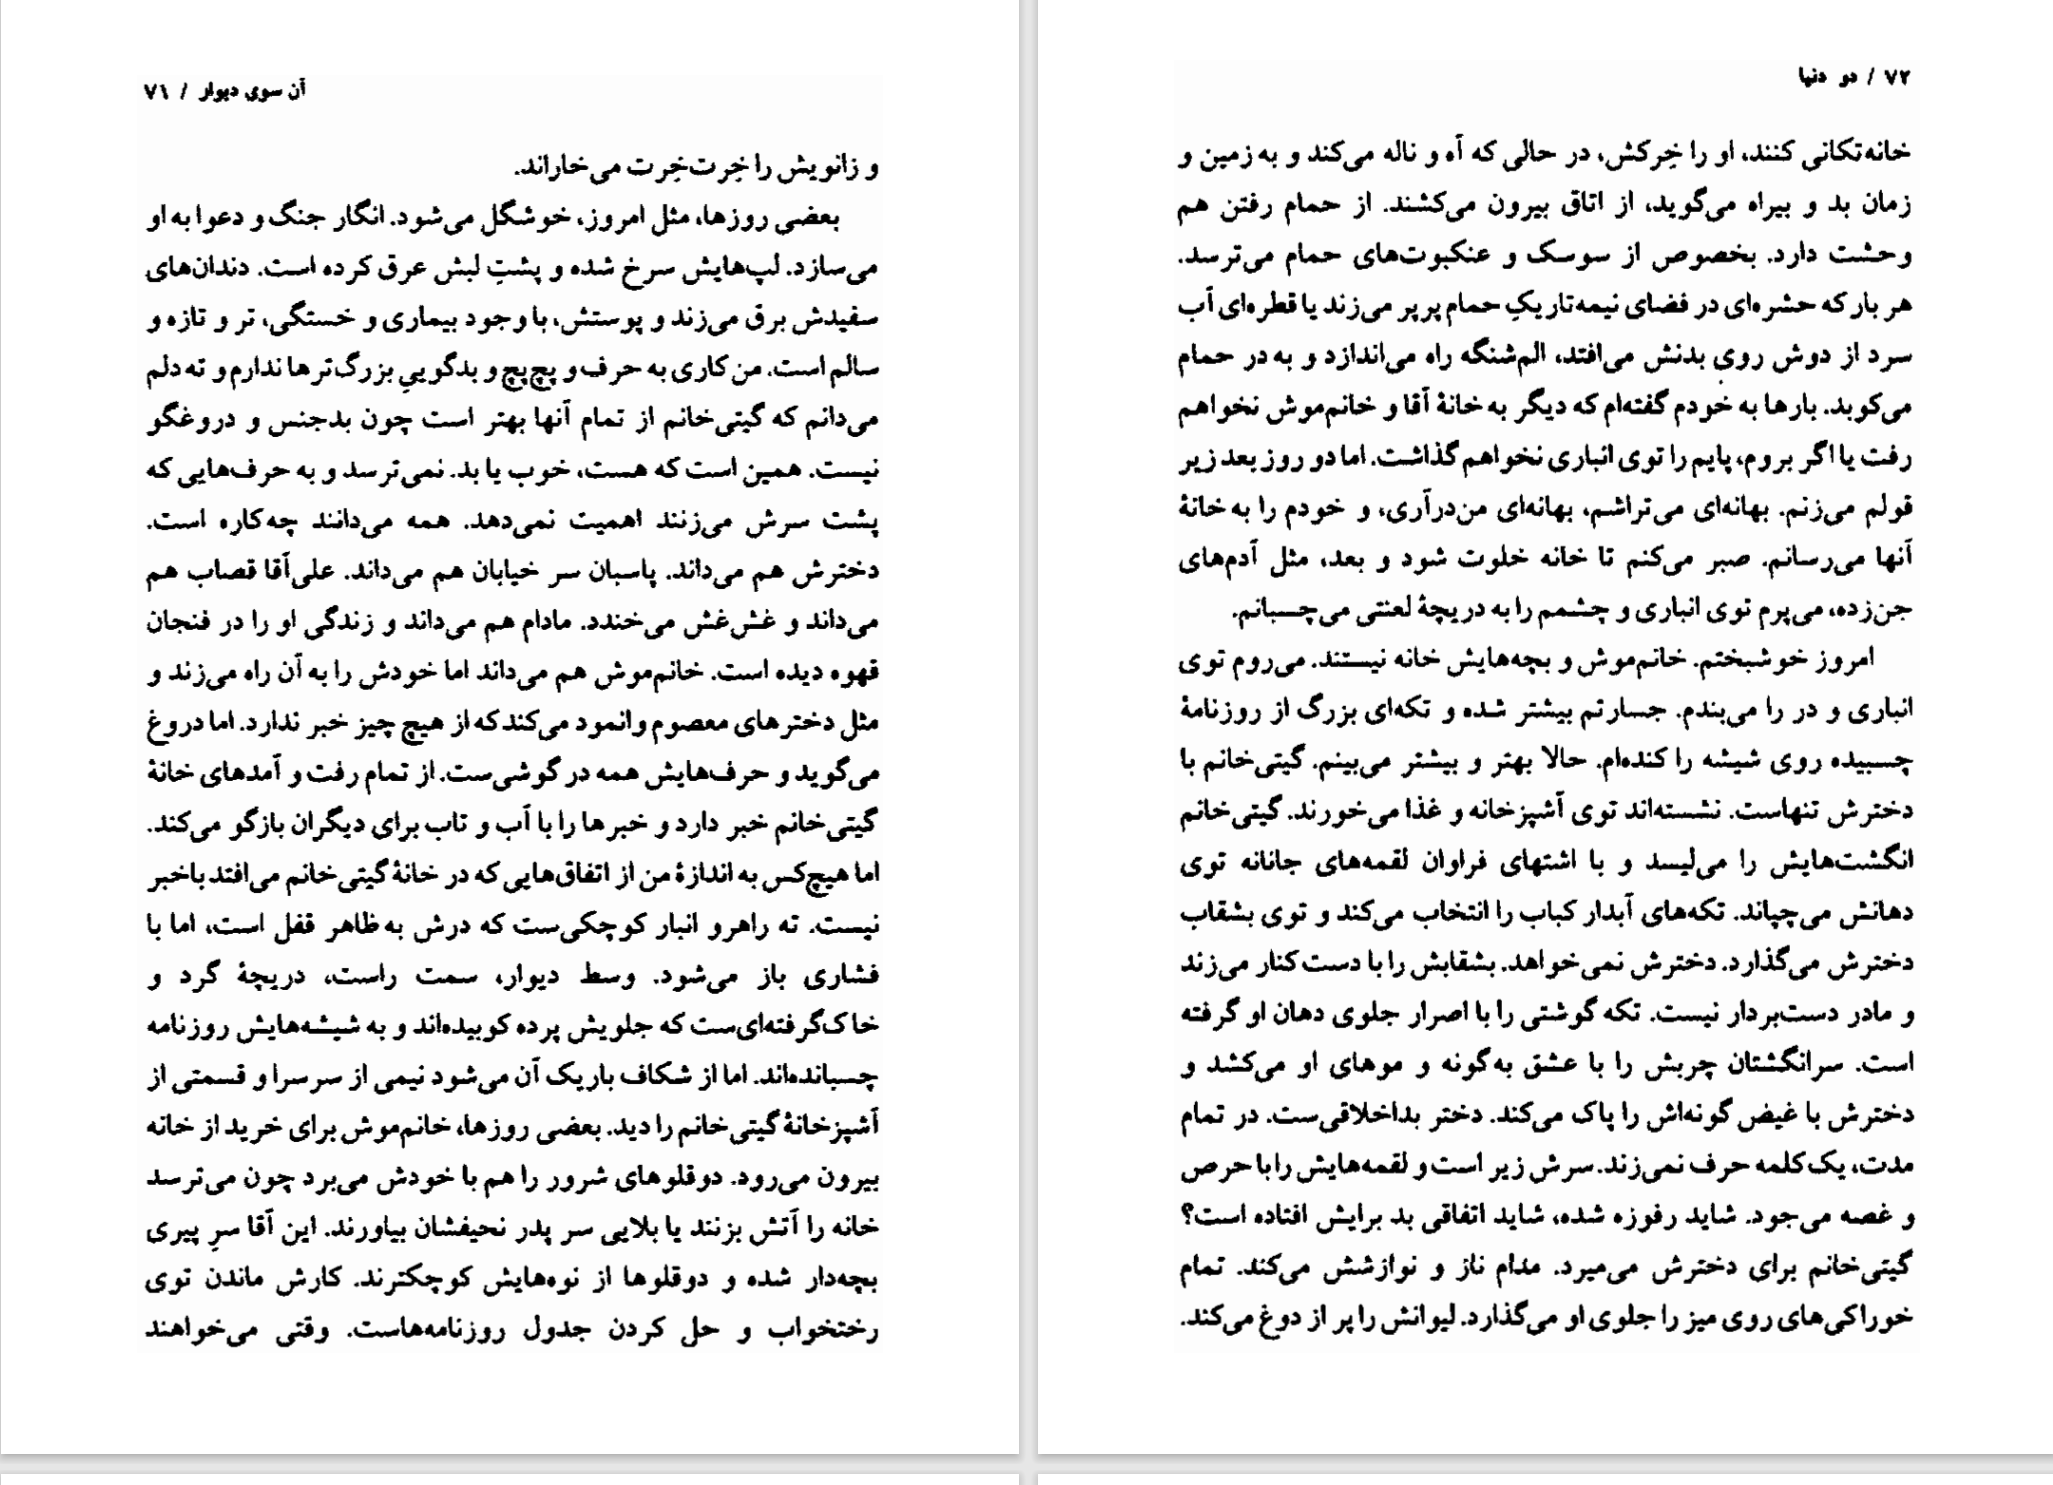 آن سوی دیوار / ۷۱
و زانویش را خِرت‌خِرت می‌خاراند.
بعضی روزها، مثل امروز، خوشگل می‌شود. انگار جنگ و دعوا به او
می‌سازد. لپ‌هایش سرخ شده و پشتِ لبش عرق کرده است. دندان‌های
سفیدش برق می‌زند و پوستش، با وجود بیماری و خستگی، تر و تازه و
سالم است. من کاری به حرف و پچ‌پچ و بدگوییِ بزرگ‌ترها ندارم و ته دلم
می‌دانم که گیتی‌خانم از تمام آنها بهتر است چون بدجنس و دروغگو
نیست. همین است که هست، خوب یا بد. نمی‌ترسد و به حرف‌هایی که
پشت سرش می‌زنند اهمیت نمی‌دهد. همه می‌دانند چه‌کاره است.
دخترش هم می‌داند. پاسبان سر خیابان هم می‌داند. علی‌آقا قصاب هم
می‌داند و غش‌غش می‌خندد. مادام هم می‌داند و زندگی او را در فنجان
قهوه دیده است. خانم‌موش هم می‌داند اما خودش را به آن راه می‌زند و
مثل دخترهای معصوم وانمود می‌کند که از هیچ چیز خبر ندارد. اما دروغ
می‌گوید و حرف‌هایش همه در گوشی‌ست. از تمام رفت و آمدهای خانهٔ
گیتی‌خانم خبر دارد و خبرها را با آب و تاب برای دیگران بازگو می‌کند.
اما هیچ‌کس به اندازهٔ من از اتفاق‌هایی که در خانهٔ گیتی‌خانم می‌افتد باخبر
نیست. ته راهرو انبار کوچکی‌ست که درش به ظاهر قفل است، اما با
فشاری باز می‌شود. وسط دیوار، سمت راست، دریچهٔ گرد و
خاک‌گرفته‌ای‌ست که جلویش پرده کوبیده‌اند و به شیشه‌هایش روزنامه
چسبانده‌اند. اما از شکاف باریک آن می‌شود نیمی از سرسرا و قسمتی از
آشپزخانهٔ گیتی‌خانم را دید. بعضی روزها، خانم‌موش برای خرید از خانه
بیرون می‌رود. دوقلوهای شرور را هم با خودش می‌برد چون می‌ترسد
خانه را آتش بزنند یا بلایی سر پدر نحیفشان بیاورند. این آقا سرِ پیری
بچه‌دار شده و دوقلوها از نوه‌هایش کوچکترند. کارش ماندن توی
رختخواب و حل کردن جدول روزنامه‌هاست. وقتی می‌خواهند
۷۲ / دو دنیا
خانه‌تکانی کنند، او را خِرکش، در حالی که آه و ناله می‌کند و به زمین و
زمان بد و بیراه می‌گوید، از اتاق بیرون می‌کشند. از حمام رفتن هم
وحشت دارد. بخصوص از سوسک و عنکبوت‌های حمام می‌ترسد.
هر بار که حشره‌ای در فضای نیمه‌تاریکِ حمام پرپر می‌زند یا قطره‌ای آب
سرد از دوش روی بدنش می‌افتد، الم‌شنگه راه می‌اندازد و به در حمام
می‌کوبد. بارها به خودم گفته‌ام که دیگر به خانهٔ آقا و خانم‌موش نخواهم
رفت یا اگر بروم، پایم را توی انباری نخواهم گذاشت. اما دو روز بعد زیر
قولم می‌زنم. بهانه‌ای می‌تراشم، بهانه‌ای من‌درآری، و خودم را به خانهٔ
آنها می‌رسانم. صبر می‌کنم تا خانه خلوت شود و بعد، مثل آدم‌های
جن‌زده، می‌پرم توی انباری و چشمم را به دریچهٔ لعنتی می‌چسبانم.
امروز خوشبختم. خانم‌موش و بچه‌هایش خانه نیستند. می‌روم توی
انباری و در را می‌بندم. جسارتم بیشتر شده و تکه‌ای بزرگ از روزنامهٔ
چسبیده روی شیشه را کنده‌ام. حالا بهتر و بیشتر می‌بینم. گیتی‌خانم با
دخترش تنهاست. نشسته‌اند توی آشپزخانه و غذا می‌خورند. گیتی‌خانم
انگشت‌هایش را می‌لیسد و با اشتهای فراوان لقمه‌های جانانه توی
دهانش می‌چپاند. تکه‌های آبدار کباب را انتخاب می‌کند و توی بشقاب
دخترش می‌گذارد. دخترش نمی‌خواهد. بشقابش را با دست کنار می‌زند
و مادر دست‌بردار نیست. تکه گوشتی را با اصرار جلوی دهان او گرفته
است. سرانگشتان چربش را با عشق به گونه و موهای او می‌کشد و
دخترش با غیض گونه‌اش را پاک می‌کند. دختر بداخلاقی‌ست. در تمام
مدت، یک کلمه حرف نمی‌زند. سرش زیر است و لقمه‌هایش را با حرص
و غصه می‌جود. شاید رفوزه شده، شاید اتفاقی بد برایش افتاده است؟
گیتی‌خانم برای دخترش می‌میرد. مدام ناز و نوازشش می‌کند. تمام
خوراکی‌های روی میز را جلوی او می‌گذارد. لیوانش را پر از دوغ می‌کند.